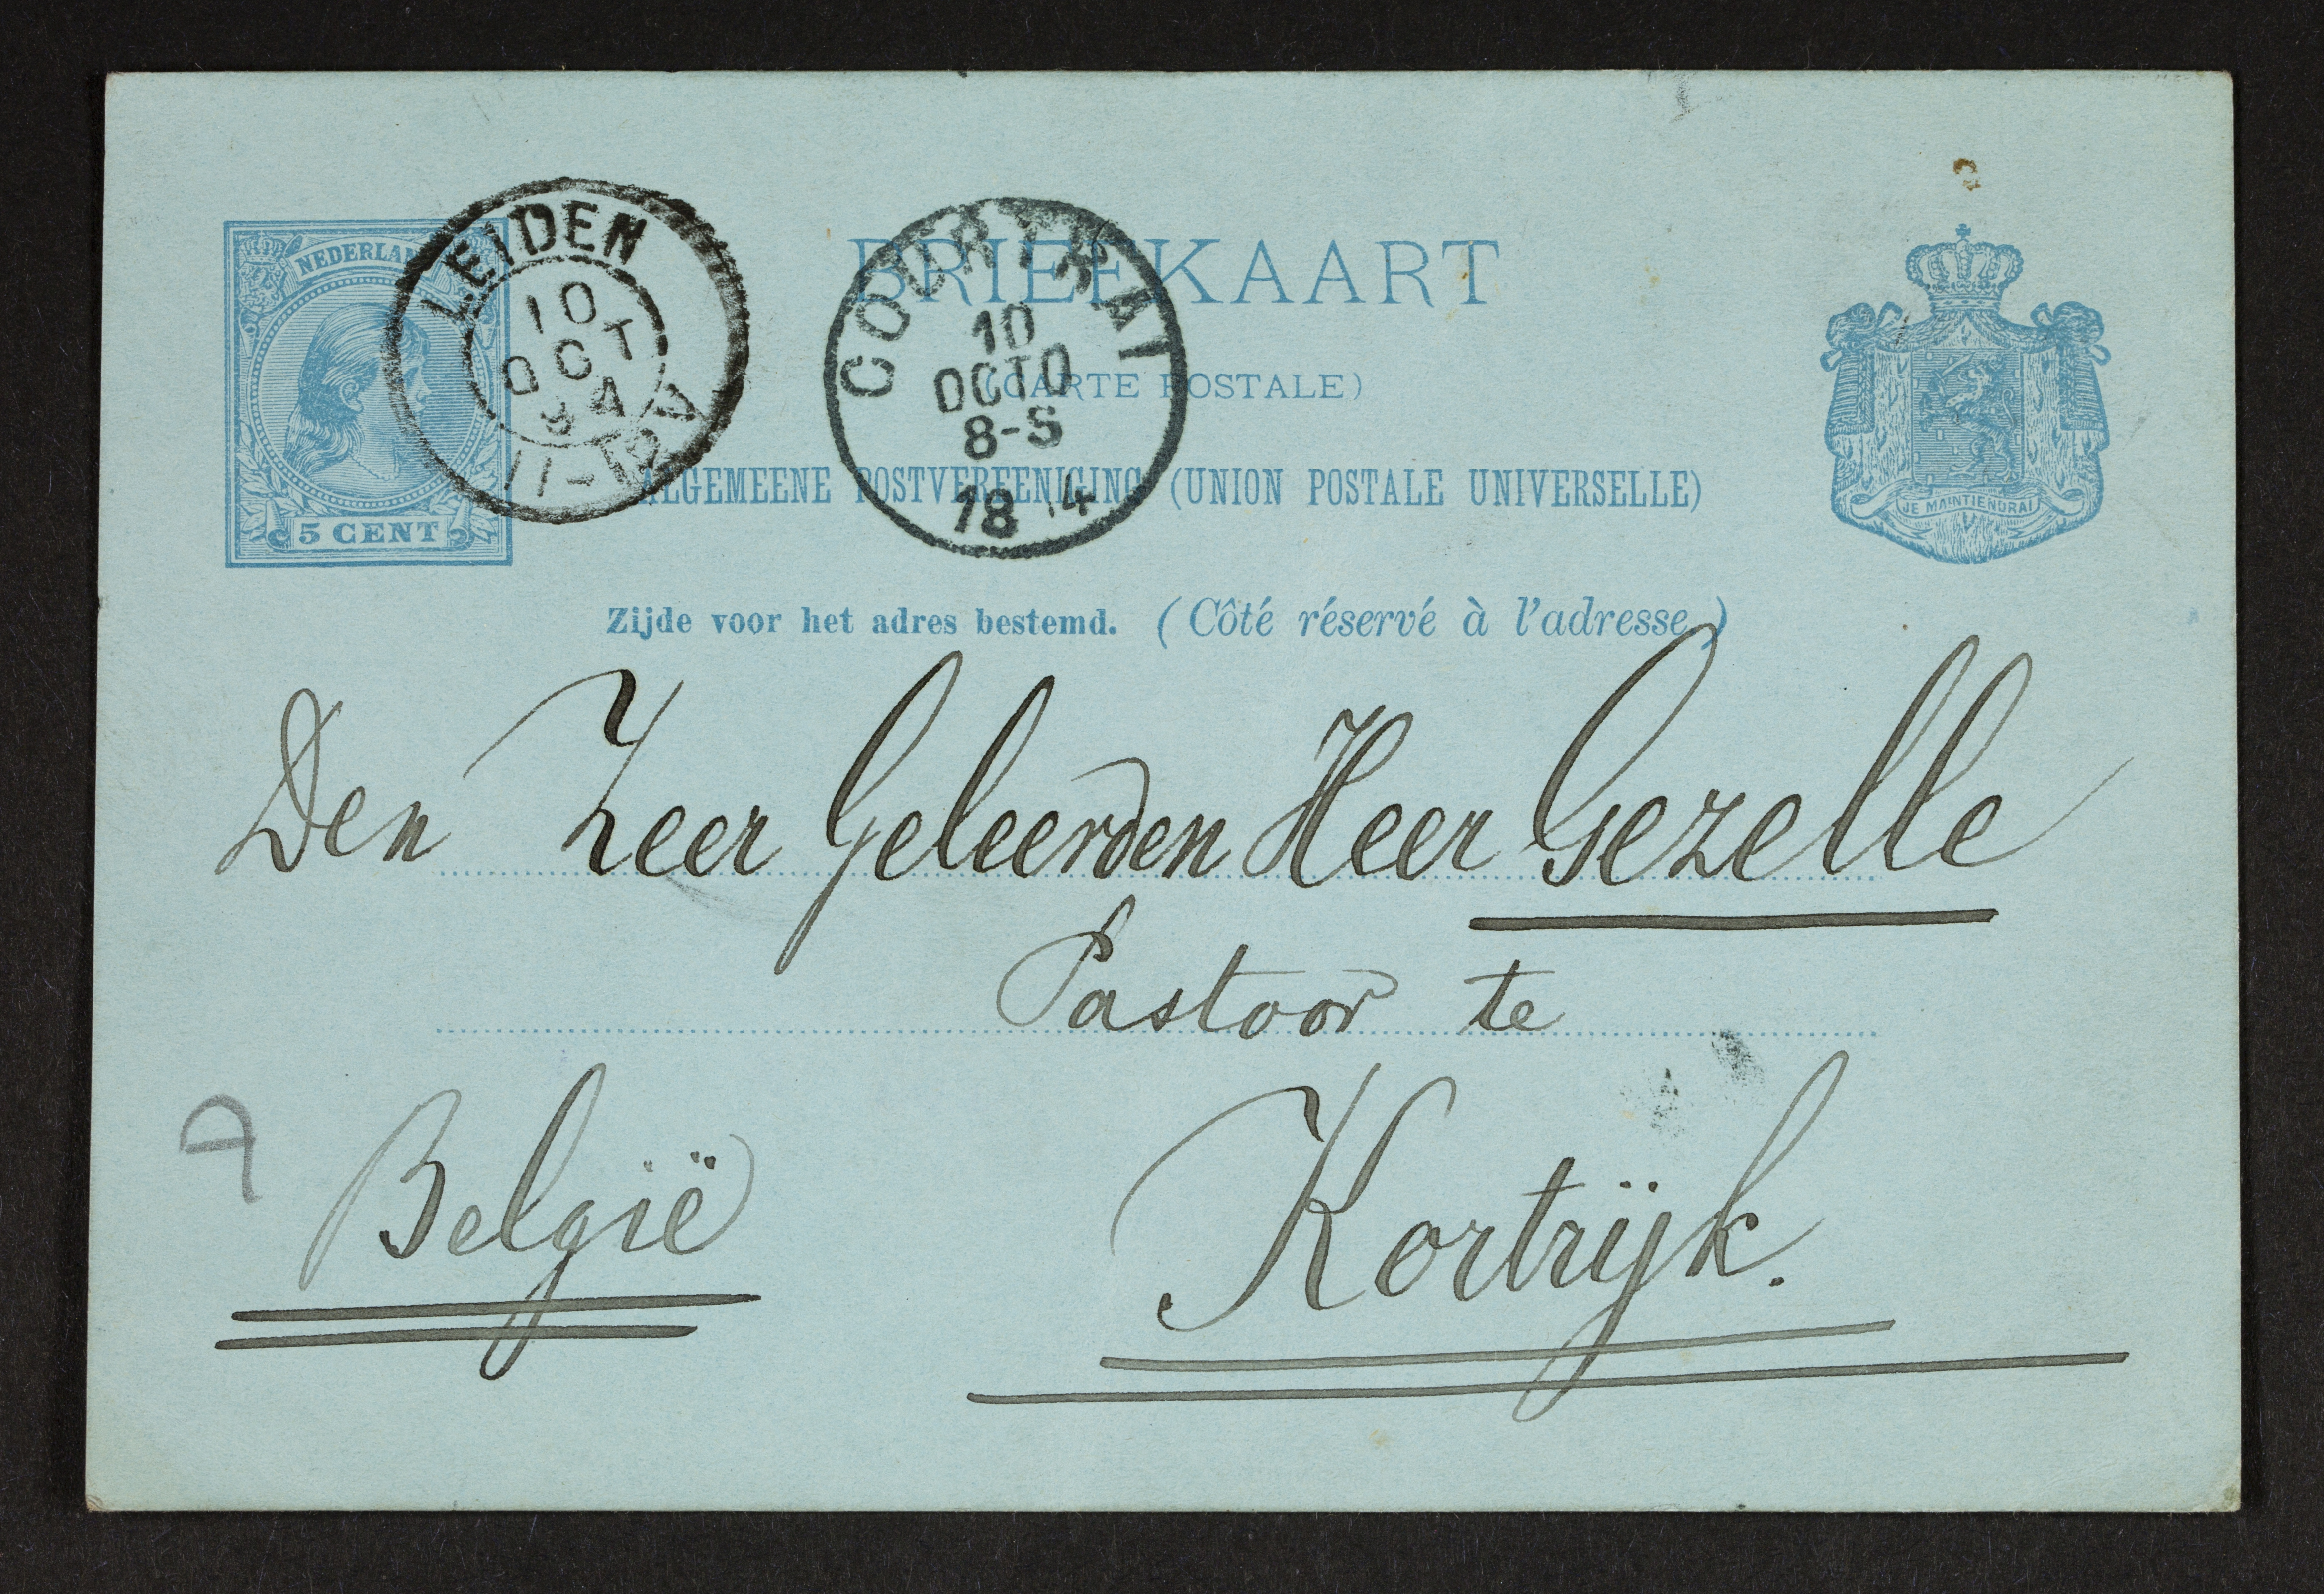 NEDERLAND
5 CENT
LEIDEN
10
OCT
94
11-12V
COURTRAI
10
OCTO
8-S
18 4
BRIEFKAART
(CARTE POSTALE)
ALGEMEENE POSTVEREENIGING (UNION POSTALE UNIVERSELLE)
JE MAINTIENDRAI
Zijde voor het adres bestemd. (Côté réservé à l'adresse.)
Den Zeer Geleerden Heer Gezelle
Pastoor te
België
Kortrijk.